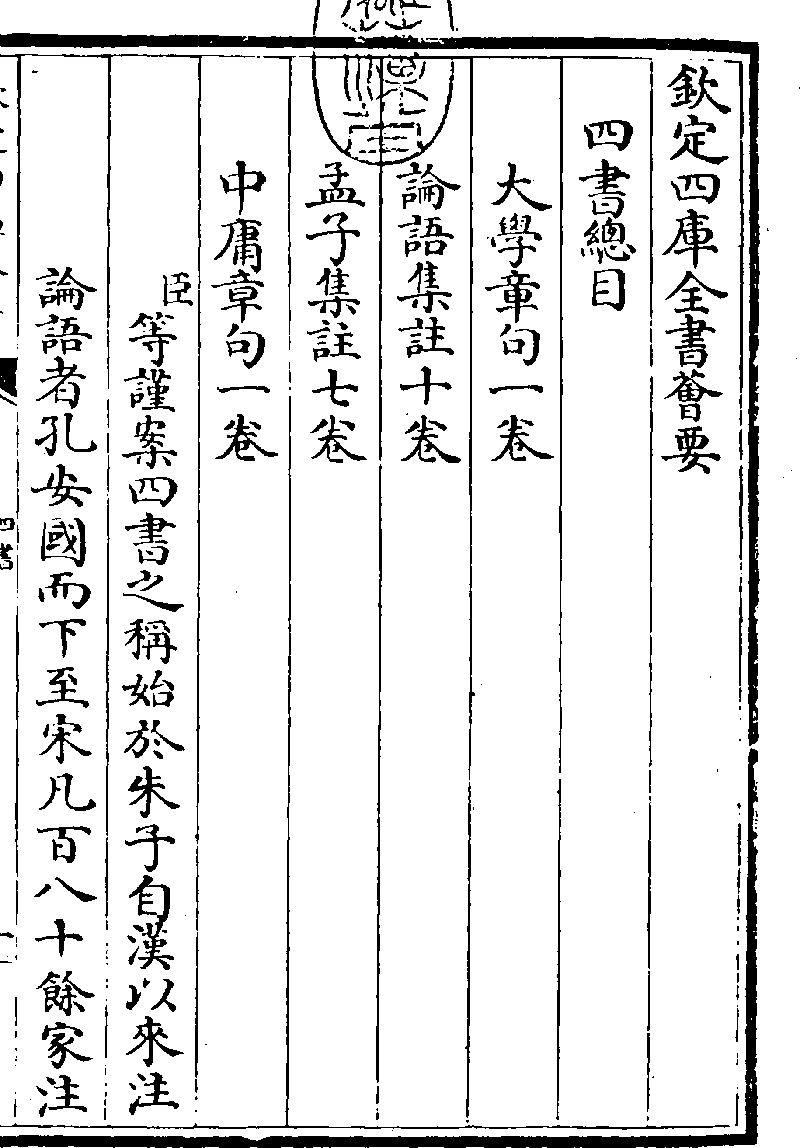 欽定四庫全書薈要
四書總目
大學章句一卷
論語集註十卷
孟子集註七卷
中庸章句一卷
臣等謹案四書之稱始於朱子自漢以來注
論語者孔安國而下至宋凡百八十餘家注
四書